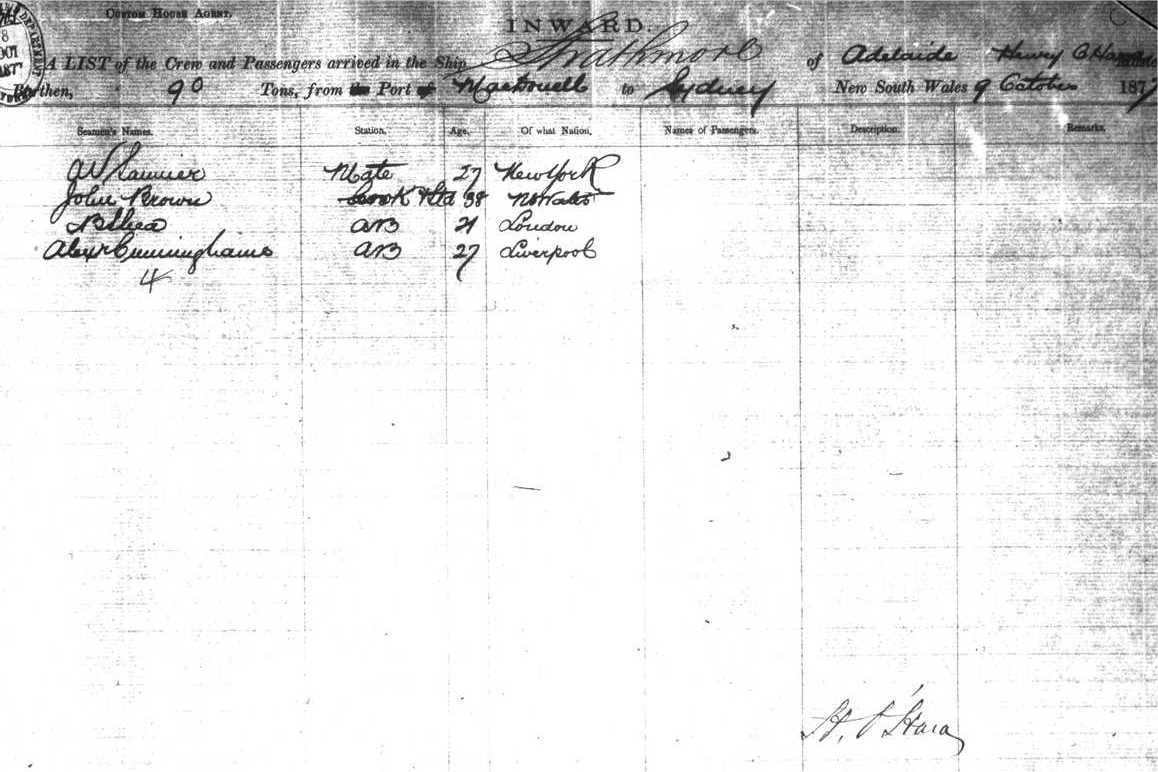 CUSTOM HOUSE AGENT.
INWARD.
A LIST of the Crew and Passengers arrived in the Ship Strathmore of Adelaide Henry
Burthen, 90 Tons, from the Port of MacDonell to Sydney New South Wales 9 October 187
Seamen's Names. Station. Age. Of what Nation. Names of Passengers. Description. Remarks.
Mate 27 New York
John Brown Cook & Std 38 N S Wales
B Shea AB 21 London
Alexr Cunninghame AB 27 Liverpool
4
H. O'Hara